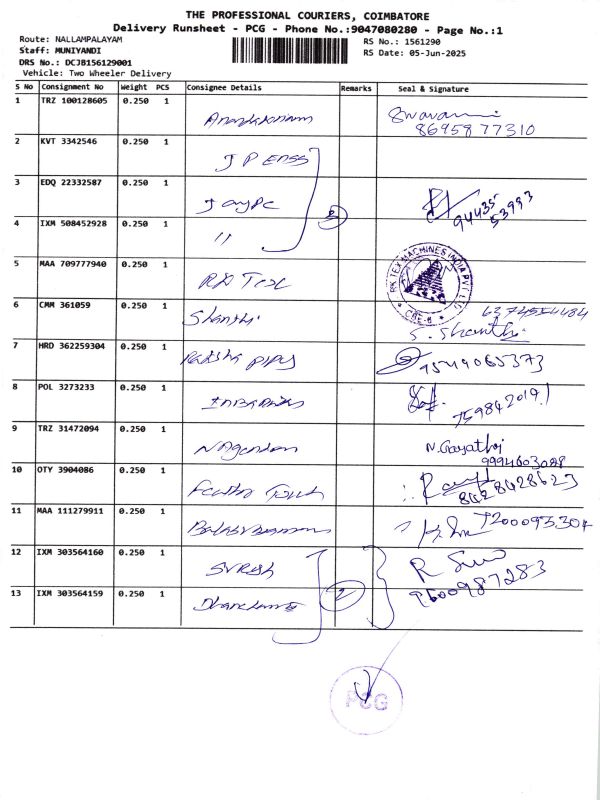 THE PROFESSIONAL COURIERS, COIMBATORE
Delivery Runsheet - PCG - Phone No.:9047080280 - Page No.:1
Route: NALLAMPALAYAM
RS No.: 1561290
Staff: MUNIYANDI
RS Date: 05-Jun-2025
DRS No.: DCJB156129001
Vehicle: Two Wheeler Delivery
S No Consignment No Weight PCS Consignee Details Remarks Seal & Signature
1 TRZ 100128605 0.250 1
86958 77310
2 KVT 3342546 0.250 1 J P
3 EDQ 22332587 0.250 1
94435 53993
4 IXM 508452928 0.250 1 11
5 MAA 709777940 0.250 1
RK TEX MACHINES INDIA PVT LTD
CBE-6
6 CMM 361059 0.250 1 Shanthi
S. Shanthi
7 HRD 362259304 0.250 1
8 POL 3273233 0.250 1
9 TRZ 31472094 0.250 1 N. Gayathri
10 OTY 3904086 0.250 1
8428428623
11 MAA 111279911 0.250 1
12 IXM 303564160 0.250 1 SURESH
2
9600987283
13 IXM 303564159 0.250 1
PCG